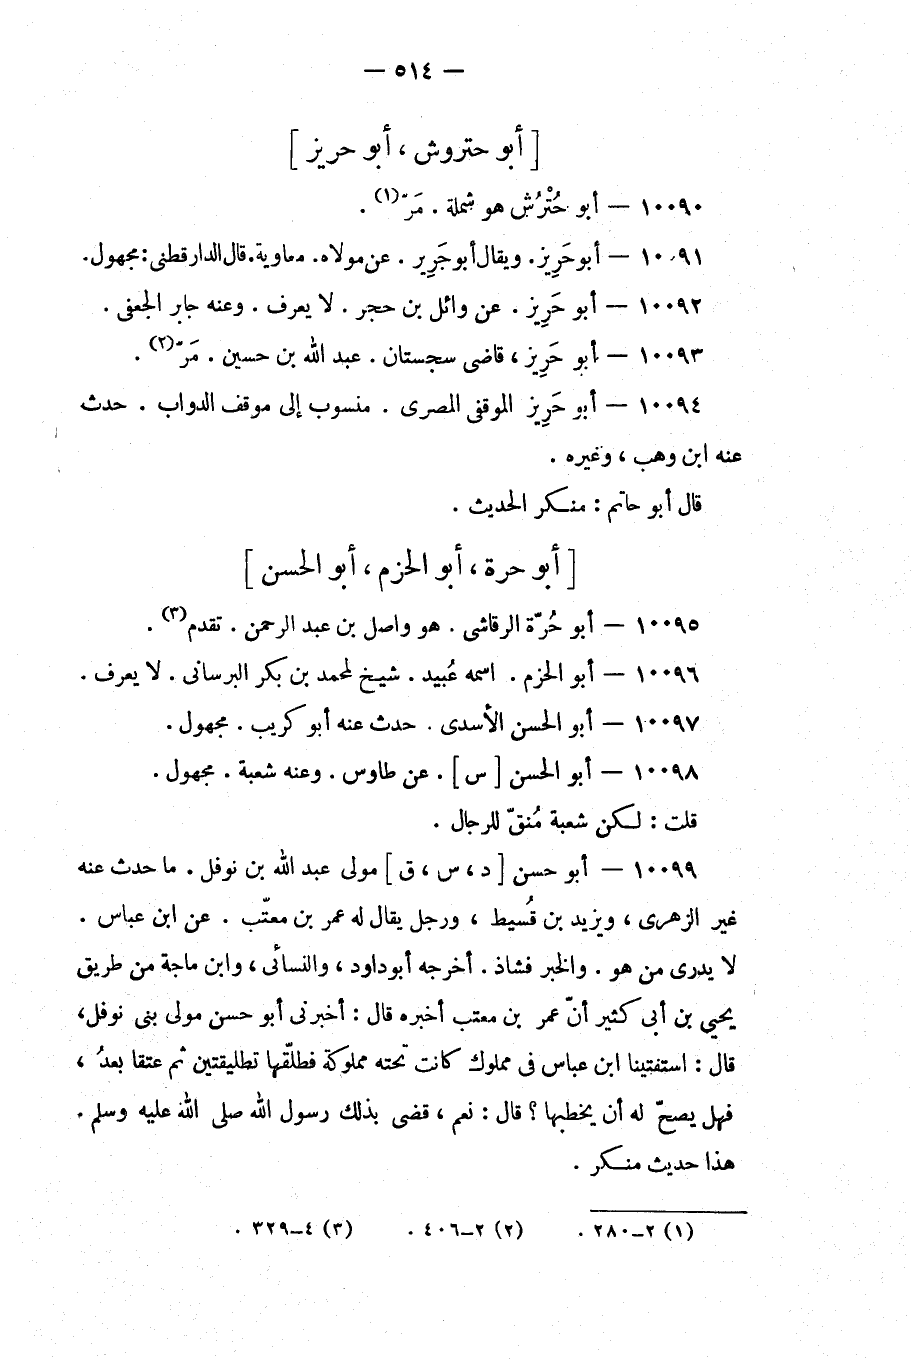 — ٥١٤ —
[ أبو حتروش ، أبو حريز ]
١٠٠٩٠ — أبو حُتْرُش هو شملة . مَرّ (١) .
١٠٠٩١ — أبو حَرِيز . ويقال أبو جَرِير . عن مولاه . معاوية . قال الدارقطنى : مجهول .
١٠٠٩٢ — أبو حَرِيز . عن وائل بن حجر . لا يعرف . وعنه جابر الجعفى .
١٠٠٩٣ — أبو حَرِيز ، قاضى سجستان . عبد الله بن حسين . مَرّ (٢) .
١٠٠٩٤ — أبو حَرِيز الموقفى المصرى . منسوب إلى موقف الدواب . حدث
عنه ابن وهب ، وغيره .
قال أبو حاتم : منكر الحديث .
[ أبو حرة ، أبو الحزم ، أبو الحسن ]
١٠٠٩٥ — أبو حُرّة الرقاشى . هو واصل بن عبد الرحمن . تقدم (٣) .
١٠٠٩٦ — أبو الحزم . اسمه عُبيد . شيخ لمحمد بن بكر البرسانى . لا يعرف .
١٠٠٩٧ — أبو الحسن الأسدى . حدث عنه أبو كريب . مجهول .
١٠٠٩٨ — أبو الحسن [ س ] . عن طاوس . وعنه شعبة . مجهول .
قلت : لكن شعبة مُنقّ للرجال .
١٠٠٩٩ — أبو حسن [ د ، س ، ق ] مولى عبد الله بن نوفل . ما حدث عنه
غير الزهرى ، ويزيد بن قُسيط ، ورجل يقال له عمر بن معتّب . عن ابن عباس .
لا يدرى من هو . والخبر فشاذ . أخرجه أبو داود ، والنسائى ، وابن ماجة من طريق
يحيي بن أبى كثير أنّ عمر بن معتب أخبره قال : أخبرنى أبو حسن مولى بنى نوفل ،
قال : استفتينا ابن عباس فى مملوك كانت تحته مملوكة فطلّقها تطليقتين ثم عتقا بعدُ ،
فهل يصحّ له أن يخطبها ؟ قال : نعم ، قضى بذلك رسول الله صلى الله عليه وسلم .
هذا حديث منكر .
(١) ٢–٢٨٠ . (٢) ٢–٤٠٦ . (٣) ٤–٣٢٩ .